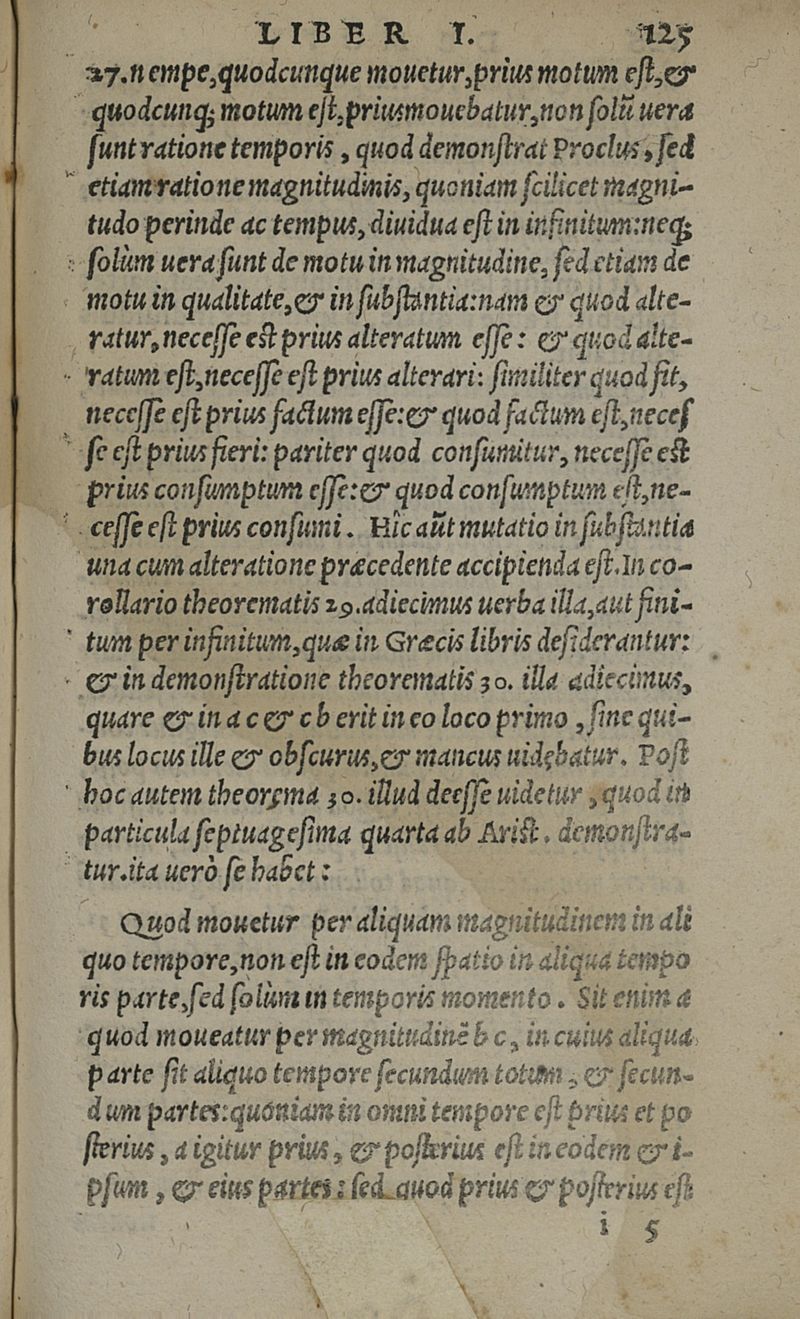 LIBER I. 125
27.nempe,quodcunque mouetur,prius motum eſt,&
quodcunq; motum eſt,priusmouebatur,non ſolũ uera
ſunt ratione temporis , quod demonſtrat Proclus , ſed
etiam ratione magnitudinis, quoniam ſcilicet magni-
tudo perinde ac tempus, diuidua eſt in infinitum:neq;
ſolùm uera ſunt de motu in magnitudine, ſed etiam de
motu in qualitate,& in ſubſtantia:nam & quod alte-
ratur,neceſſe est prius alteratum eſſe: & quod alte-
ratum eſt,neceſſe eſt prius alterari: ſimiliter quod fit,
neceſſe eſt prius factum eſſe:& quod factum eſt,neceſ
ſe eſt prius fieri: pariter quod conſumitur, neceſſe est
prius conſumptum eſſe:& quod conſumptum eſt,ne-
ceſſe eſt prius conſumi. Hìc aũt mutatio in ſubſtantia
una cum alteratione præcedente accipienda eſt.In co-
rollario theorematis 29.adiecimus uerba illa,aut fini-
tum per infinitum,quæ in Græcis libris deſiderantur:
& in demonſtratione theorematis 30. illa adiecimus,
quare & in a c & c b erit in eo loco primo , ſine qui-
bus locus ille & obſcurus,& mancus uidębatur. Poſt
hoc autem theoręma 30. illud deeſſe uidetur , quod in
particula ſeptuageſima quarta ab Arist. demonſtra-
tur.ita uerò ſe habet :
Quod mouetur per aliquam magnitudinem in ali
quo tempore,non eſt in eodem ſpatio in aliqua tempo
ris parte,ſed ſolùm in temporis momento. Sit enim a
quod moueatur per magnitudinẽ b c, in cuius aliqua
parte ſit aliquo tempore ſecundum totum , & ſecun-
dum partes:quoniam in omni tempore eſt prius et po
ſterius , a igitur prius , & poſterius eſt in eodem & i-
pſum , & eius partes : ſed quod prius & poſterius eſt
i 5